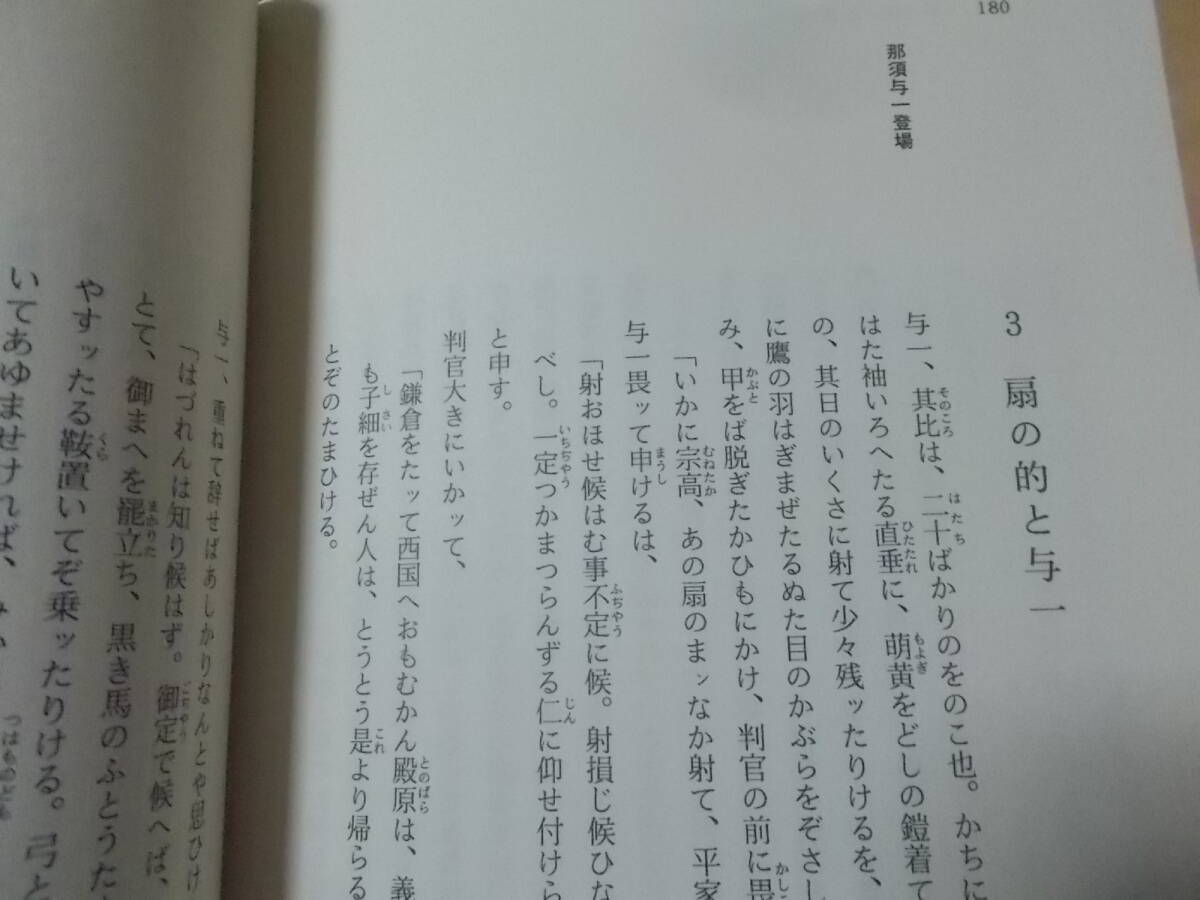 180
那須与一登場
3 扇の的と与一
与一、其比は、二十ばかりのをのこ也。かちに
はた袖いろへたる直垂に、萌黄をどしの鎧着て
の、其日のいくさに射て少々残ッたりけるを、
に鷹の羽はぎまぜたるぬた目のかぶらをぞさし
み、甲をば脱ぎたかひもにかけ、判官の前に畏
「いかに宗高、あの扇のまンなか射て、平家
与一畏ッて申けるは、
「射おほせ候はむ事不定に候。射損じ候ひな
べし。一定つかまつらんずる仁に仰せ付けら
と申す。
判官大きにいかッて、
「鎌倉をたッて西国へおもむかん殿原は、義
も子細を存ぜん人は、とうとう是より帰らる
とぞのたまひける。
与一、重ねて辞せばあしかりなんとや思ひけ
「はづれんは知り候はず。御定で候へば、
とて、御まへを罷立ち、黒き馬のふとうた
やすッたる鞍置いてぞ乗ッたりける。弓と
いてあゆませければ、
つはものども